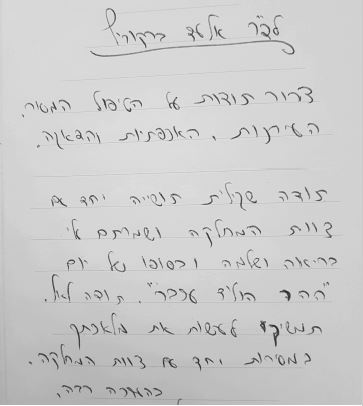 לד"ר אלעד ברקוביץ
צרור תודות על הטיפול המסור,
העירנות, האכפתיות והדאגה.
תודה שקלית תושייה יחד עם
צוות המחלקה ושמרתם עלי
בריאה ושלמה ובסופו של יום
"ההר הוליד עכבר". תודה לאל.
תמשיך לעשות את מלאכתך
במסירות יחד עם צוות המחלקה.
בהערכה רבה,